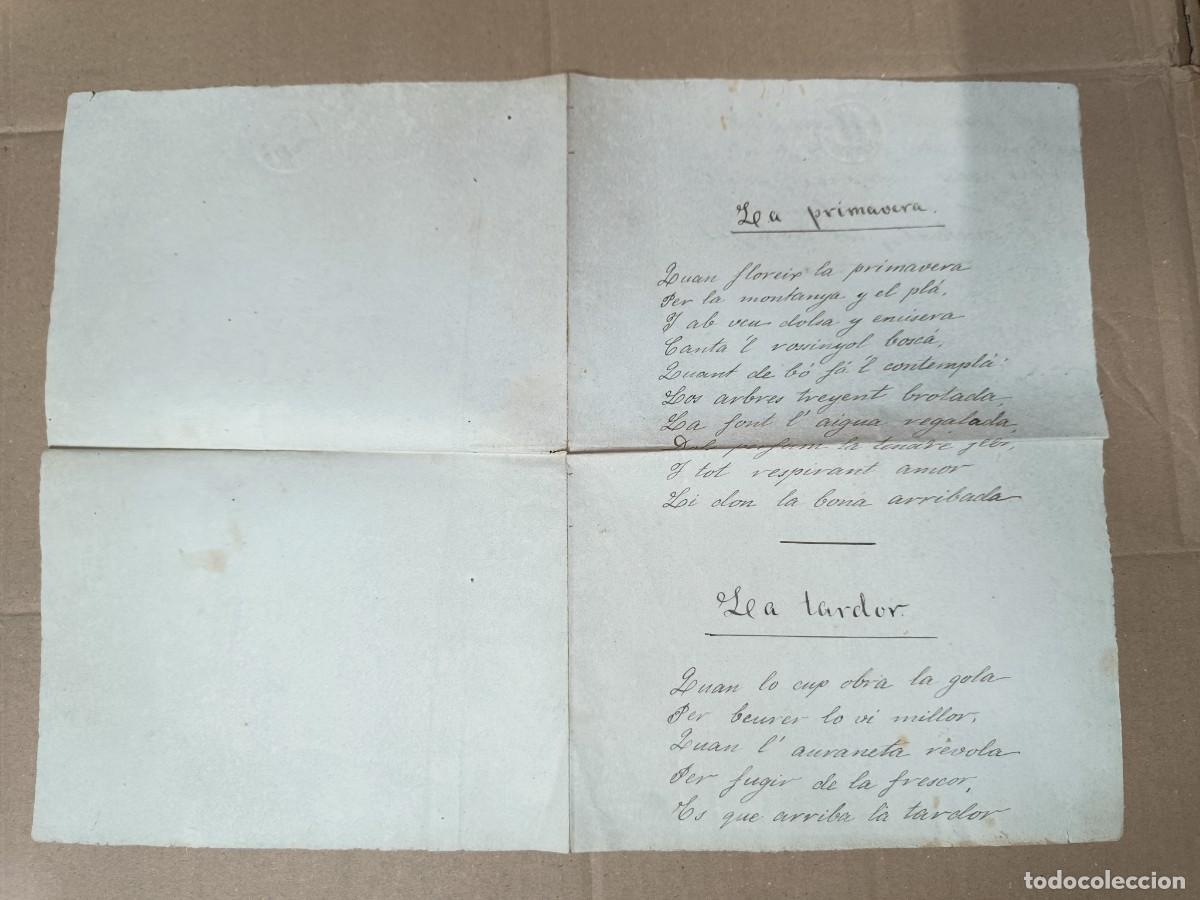 La primavera.
Quan floreix la primavera
Per la montanya y el plá,
I ab veu dolsa y encisera
Canta 'l rossinyol boscá,
Quant de bó fá 'l contemplá:
Los arbres treyent brotada,
La font l' aigua regalada,
perfum la tendre
I tot respirant amor
Li don la bona arribada
La tardor.
Quan lo cup obra la gola
Per beurer lo vi millor,
Quan l' auraneta revola
Per fugir de la frescor,
Es que arriba la tardor
todocoleccion